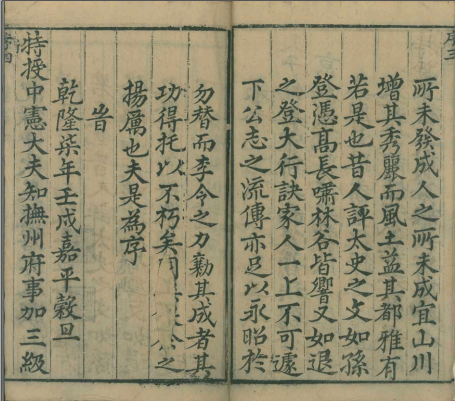 序三
所未發成人之所未成宜山川
增其秀麗而風土益其都雅有
若是也昔人評太史之文如孫
登憑高長嘯林谷皆響又如退
之登大行訣家人一上不可遽
下公志之流傳亦足以永昭於
勿替而李令之力勷其成者其
功得托以不朽矣公之
揚厲也夫是為序
旹
乾隆柒年壬戌嘉平穀旦
特授中憲大夫知撫州府事加三級
序四